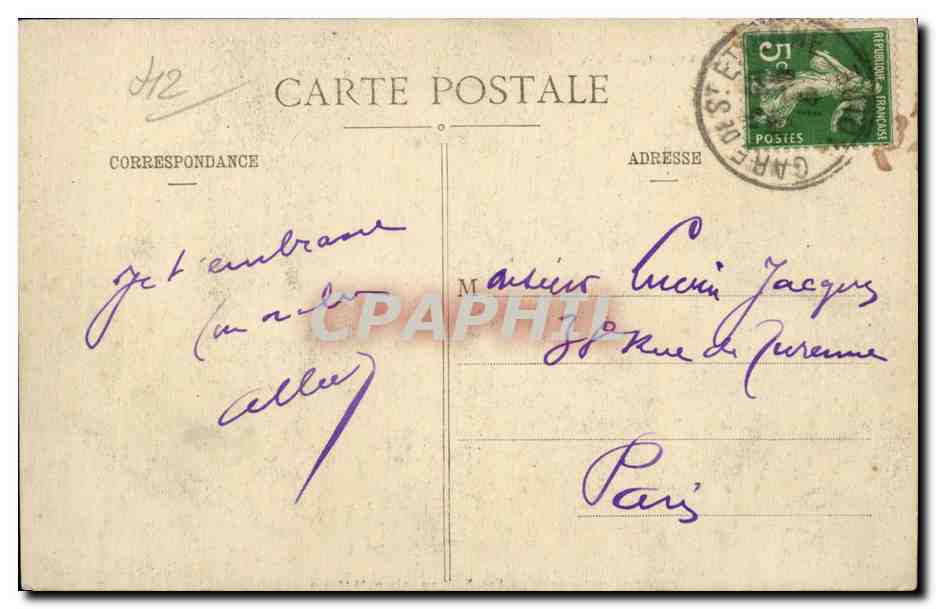 412
CARTE POSTALE
CORRESPONDANCE
ADRESSE
5c
REPUBLIQUE FRANCAISE
POSTES
GARE DE ST ETIENNE
Je t'embrasse
Monsieur Lucien Jacques
38 Rue de Turenne
Paris
CPAPHIL